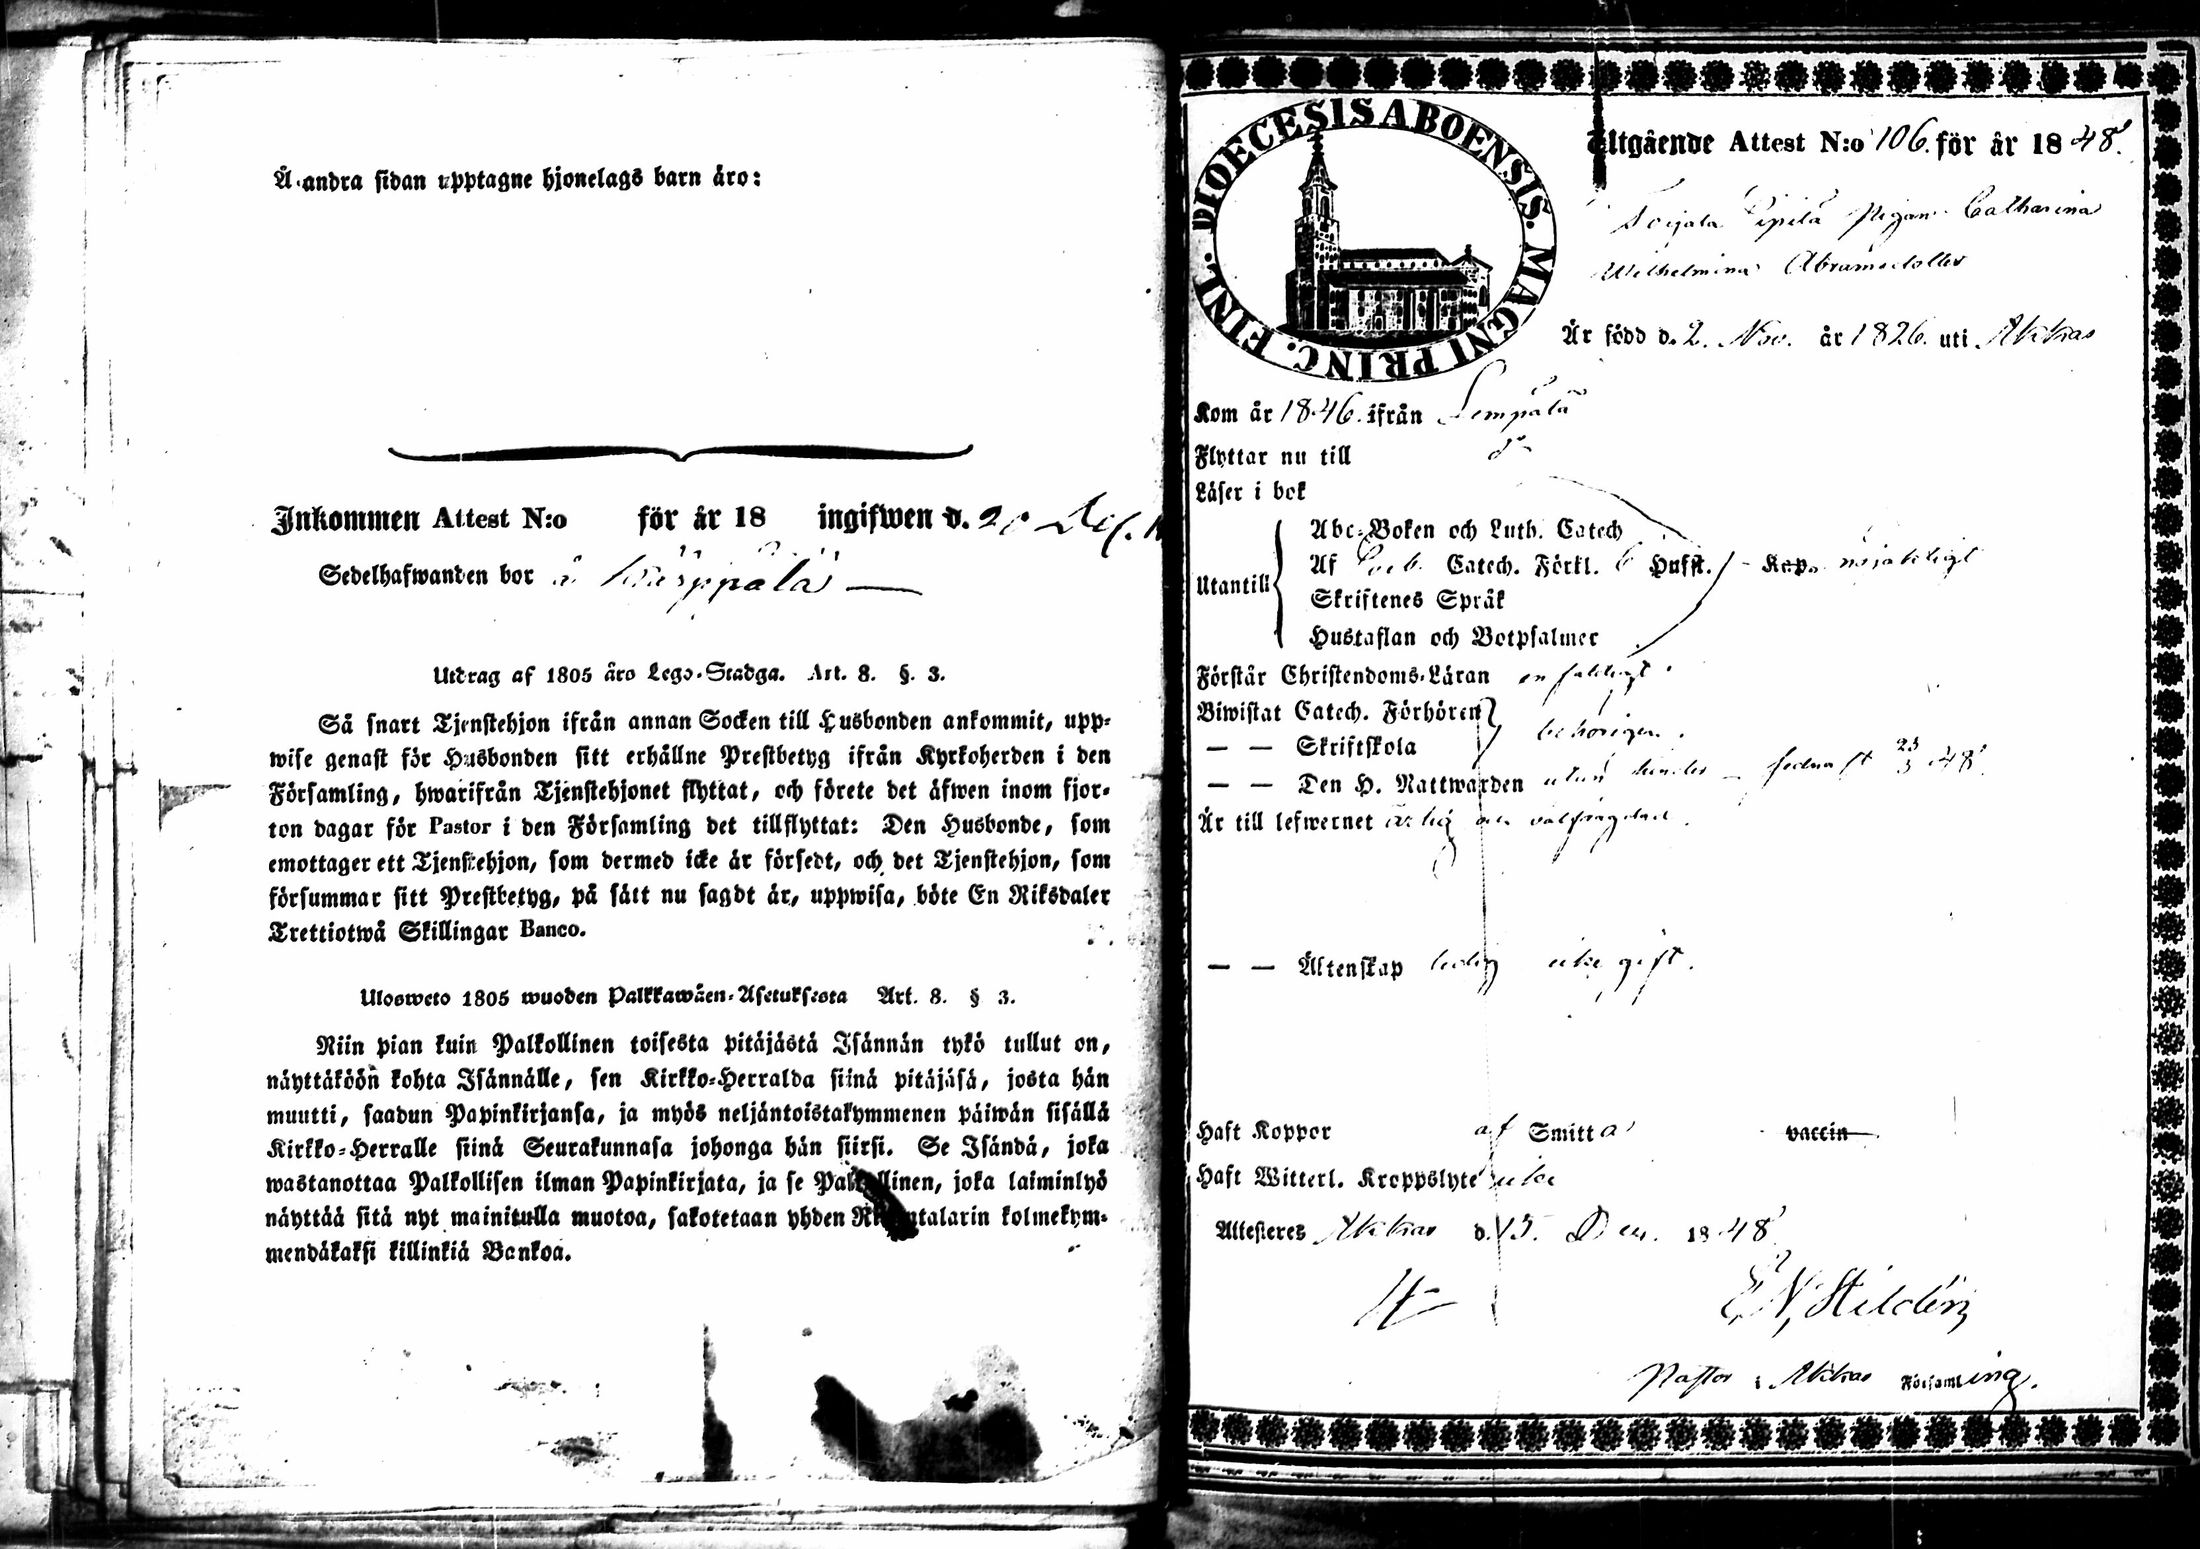 Å andra sidan upptagne hjonelags barn äro:
Inkommen Attest N:o för år 18 ingifwen d. 20 Dec.
Sedelhafwanden bor å
Utdrag af 1805 års Lego-Stadga. Art. 8. §. 3.
Så snart Tjenstehjon ifrån annan Socken till Husbonden ankommit, upp-
wise genast för Husbonden sitt erhållne Prestbetyg ifrån Kyrkoherden i den
Församling, hwarifrån Tjenstehjonet flyttat, och förete det äfwen inom fjor-
ton dagar för Pastor i den Församling det tillflyttat: Den Husbonde, som
emottager ett Tjenstehjon, som dermed icke är försedt, och det Tjenstehjon, som
försummar sitt Prestbetyg, på sätt nu sagdt är, uppwisa, böte En Riksdaler
Trettiotwå Skillingar Banco.
Ulosweto 1805 wuoden Palkkawäen-Asetuksesta Art. 8. § 3.
Niin pian kuin Palkollinen toisesta pitäjästä Isännän tykö tullut on,
näyttäköön kohta Isännälle, sen Kirkko-Herralda siinä pitäjäsä, josta hän
muutti, saadun Papinkirjansa, ja myös neljäntoistakymmenen päiwän sisällä
Kirkko-Herralle siinä Seurakunnasa johonga hän siirsi. Se Isändä, joka
wastanottaa Palkollisen ilman Papinkirjata, ja se Palkollinen, joka laiminlyö
näyttää sitä nyt mainitulla muotoa, sakotetaan yhden Riksintalarin kolmekym-
mendäkaksi killinkiä Bankoa.
DIOECESIS ABOENSIS. MAGNI PRINC. FINL.
Utgående Attest N:o 106. för år 1848.
Pipilä Pigan Catharina
Wilhelmina Abramsdotter
Är född d. 2. Nov. år 1826. uti Akkas
Kom år 1846. ifrån Lempälä
Flyttar nu till
Läser i bok
Utantill
Abc-Boken och Luth. Catech
Af Catech. Förkl. 6 Hufst.
Skriftenes Språk
Hustaflan och Botpsalmer
nöjaktligt
Förstår Christendoms-Läran enfaldigt.
Biwistat Catech. Förhören
— — Skriftskola
behörigen.
— — Den H. Nattwarden utan hinder — sednast 25/3 48.
Är till lefwernet ärlig och välfrägdad.
— — Äktenskap ledig icke gift.
Haft Koppor af Smitta vaccin
Haft Witterl. Kroppslyte icke
Attesteres Akkas d. 15. Dec. 1848
E, N, Hildén,
Pastor i Akkas Församling.